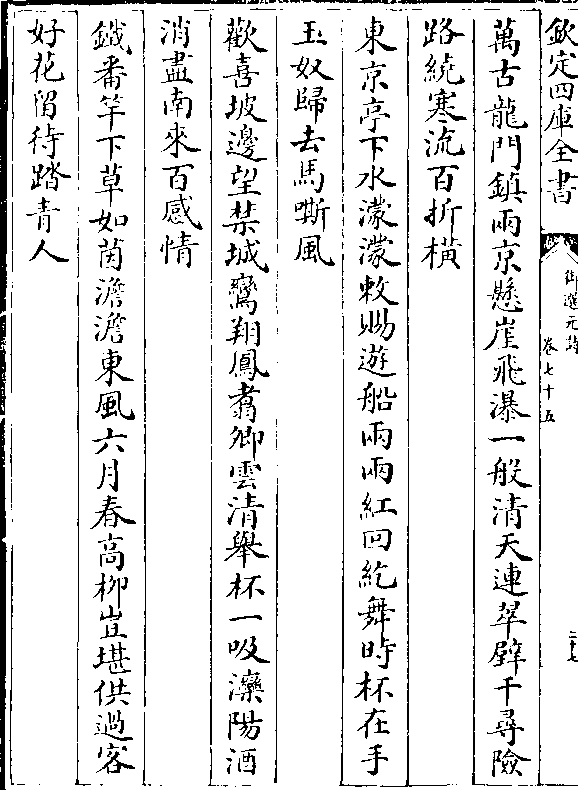 欽定四庫全書
御選元詩
卷七十五
二十七
萬古龍門鎮兩京懸崖飛瀑一般清天連翠壁千尋險
路繞寒流百折橫
東京亭下水濛濛敕賜遊船兩兩紅回紇舞時杯在手
玉奴歸去馬嘶風
歡喜坡邊望禁城鸞翔鳳翥卿雲清舉杯一吸灤陽酒
消盡南來百感情
鐵番竿下草如茵澹澹東風六月春高柳豈堪供過客
好花留待踏青人